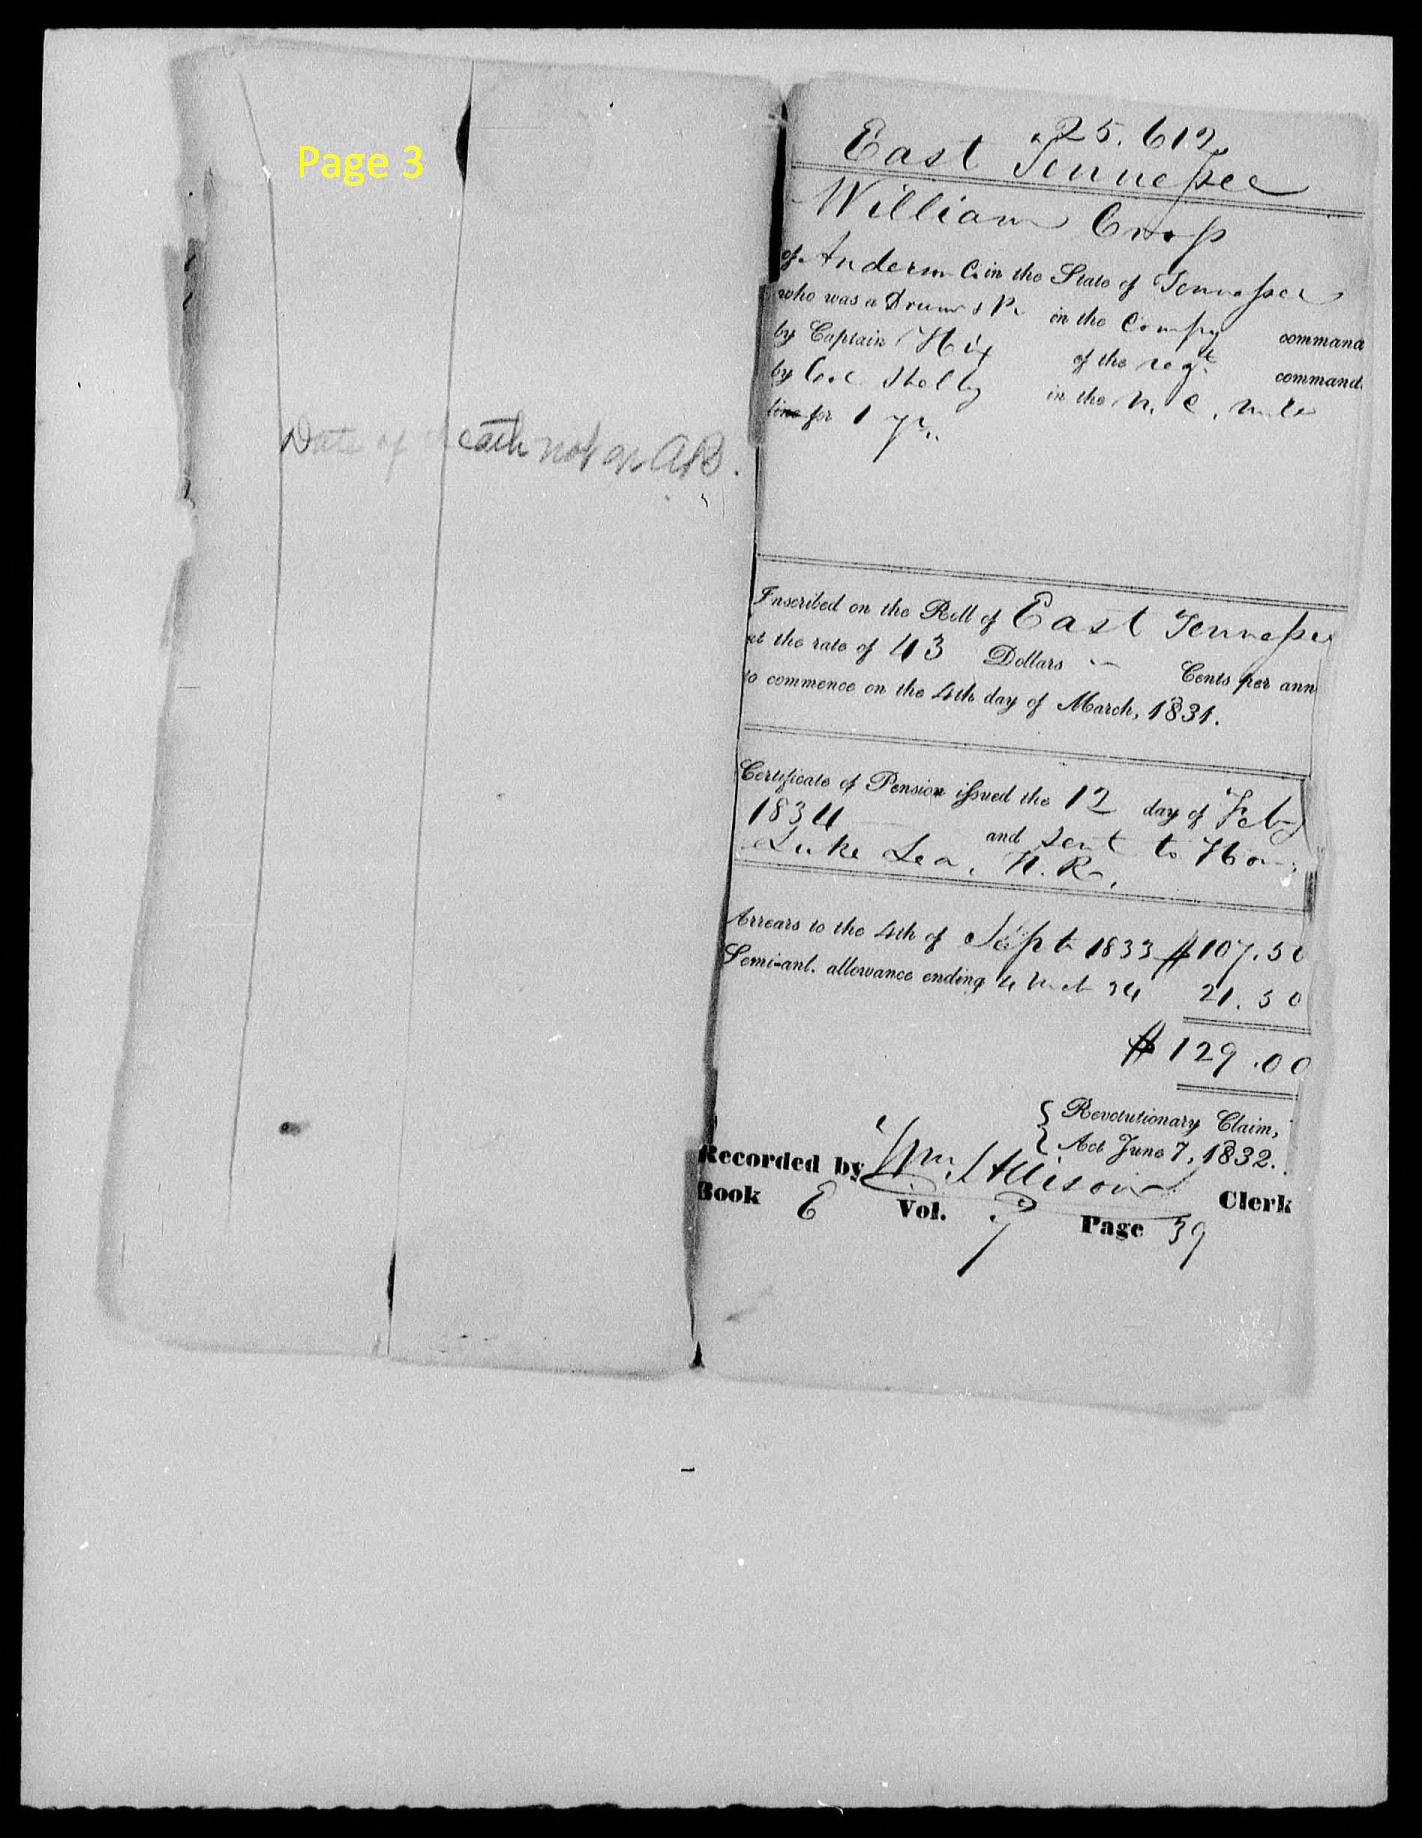 Page 3
Date of death not on A&B.
25.612
East Tennessee
William Cross
of Anderson Co in the State of Tennessee
who was a Drum & Pr in the Compy command
by Captain Hix of the regt command
by Col Shelby in the N. C. Mile
line for 1 yr.
Inscribed on the Roll of East Tennessee
at the rate of 43 Dollars — Cents per ann
to commence on the 4th day of March, 1831.
Certificate of Pension issued the 12 day of Feby
1834 and sent to Hon.
Luke Lea, H.R.
Arrears to the 4th of Sept 1833 $107.50
Semi-anl. allowance ending 4 Mch 34 21.50
$129.00
Revolutionary Claim,
Act June 7, 1832.
Recorded by Wm Allison Clerk
Book E Vol. 7 Page 39